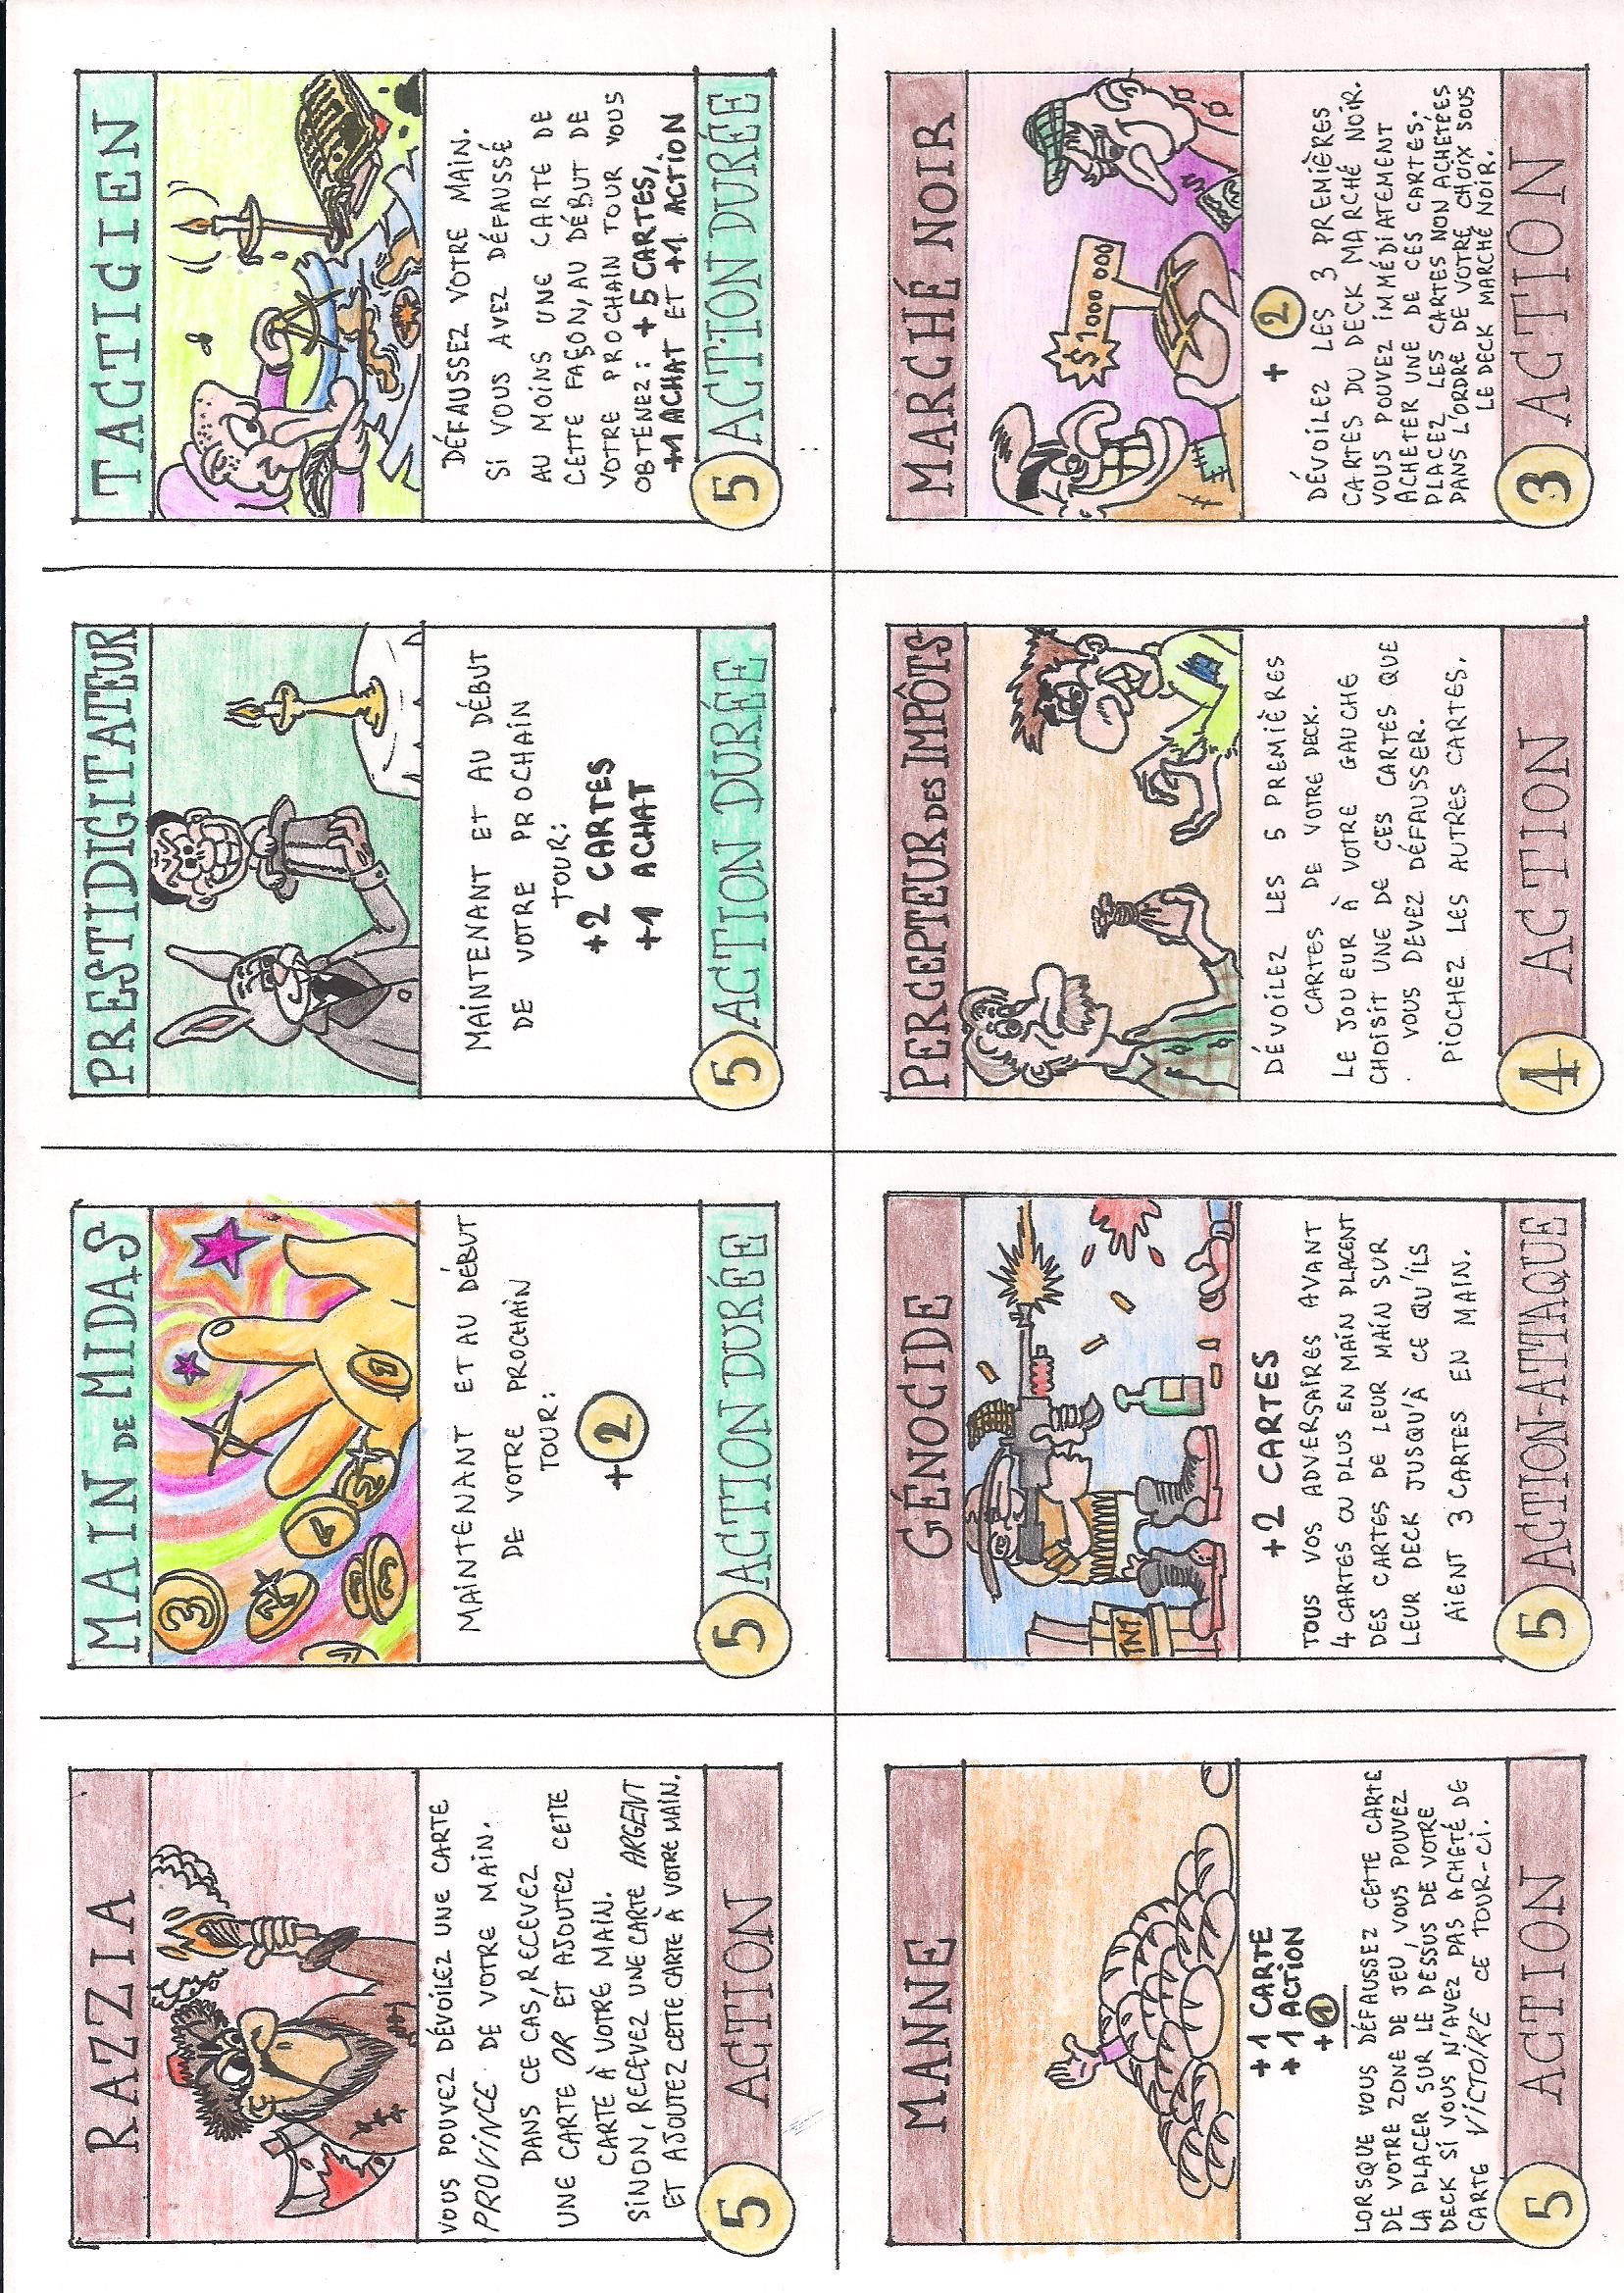 RAZZIA
VOUS POUVEZ DÉVOILEZ UNE CARTE
PROVINCE DE VOTRE MAIN.
DANS CE CAS, RECEVEZ
UNE CARTE OR ET AJOUTEZ CETTE
CARTE À VOTRE MAIN.
SINON, RECEVEZ UNE CARTE ARGENT
ET AJOUTEZ CETTE CARTE À VOTRE MAIN.
5 ACTION
MAIN DE MIDAS
3
2
1
2
3
1
MAINTENANT ET AU DÉBUT
DE VOTRE PROCHAIN
TOUR:
+2
5 ACTION DURÉE
PRESTIDIGITATEUR
MAINTENANT ET AU DÉBUT
DE VOTRE PROCHAIN
TOUR:
+2 CARTES
+1 ACHAT
5 ACTION DURÉE
TACTICIEN
DÉFAUSSEZ VOTRE MAIN.
SI VOUS AVEZ DÉFAUSSÉ
AU MOINS UNE CARTE DE
CETTE FAÇON, AU DÉBUT DE
VOTRE PROCHAIN TOUR VOUS
OBTENEZ: +5 CARTES,
+1 ACHAT ET +1 ACTION
5 ACTION DURÉE
MANNE
+1 CARTE
+1 ACTION
+1
LORSQUE VOUS DÉFAUSSEZ CETTE CARTE
DE VOTRE ZONE DE JEU, VOUS POUVEZ
LA PLACER SUR LE DESSUS DE VOTRE
DECK SI VOUS N'AVEZ PAS ACHETÉ DE
CARTE VICTOIRE CE TOUR-CI.
5 ACTION
GÉNOCIDE
TNT
+2 CARTES
TOUS VOS ADVERSAIRES AVANT
4 CARTES OU PLUS EN MAIN PLACENT
DES CARTES DE LEUR MAIN SUR
LEUR DECK JUSQU'À CE QU'ILS
AIENT 3 CARTES EN MAIN.
5 ACTION-ATTAQUE
PERCEPTEUR DES IMPÔTS
DÉVOILEZ LES 5 PREMIÈRES
CARTES DE VOTRE DECK.
LE JOUEUR À VOTRE GAUCHE
CHOISIT UNE DE CES CARTES QUE
VOUS DEVEZ DÉFAUSSER.
PIOCHEZ LES AUTRES CARTES.
4 ACTION
MARCHÉ NOIR
$ 1000 000
+ 2
DÉVOILEZ LES 3 PREMIÈRES
CARTES DU DECK MARCHÉ NOIR.
VOUS POUVEZ IMMÉDIATEMENT
ACHETER UNE DE CES CARTES.
PLACEZ LES CARTES NON ACHETÉES
DANS L'ORDRE DE VOTRE CHOIX SOUS
LE DECK MARCHÉ NOIR.
3 ACTION